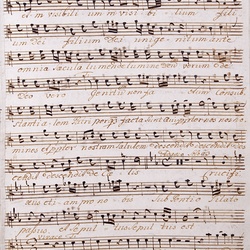 visibilium invisibilium fili
um Dei filium Dei unigenitum ante
omnia saecula lumen de lumine Deum verum de
Deo vero Genitum non factum Consub
stantialem Patri per quem facta sunt qui propter nos ho
mines et propter nostram salutem descendit descendit de
descendit de Coelis Crucifi
xus etiam pro nobis sub Pontio Pilato
passus et sepultus sepultus est